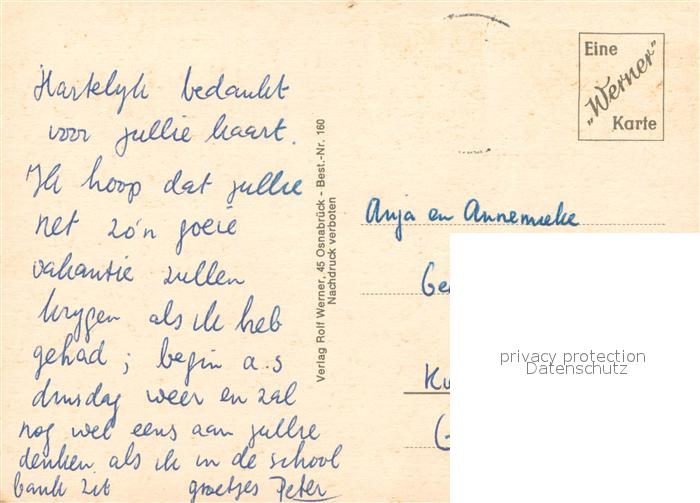 Hartelijk bedankt
voor jullie kaart.
Ik hoop dat jullie
net zo'n goeie
vakantie zullen
krijgen als ik heb
gehad; begin a.s
dinsdag weer en zal
nog wel eens aan jullie
denken als ik in de school
bank zit groetjes Peter
Verlag Rolf Werner, 45 Osnabrück - Best.-Nr. 160
Nachdruck verboten
Eine
„Werner"
Karte
Anja en Annemieke
privacy protection
Datenschutz